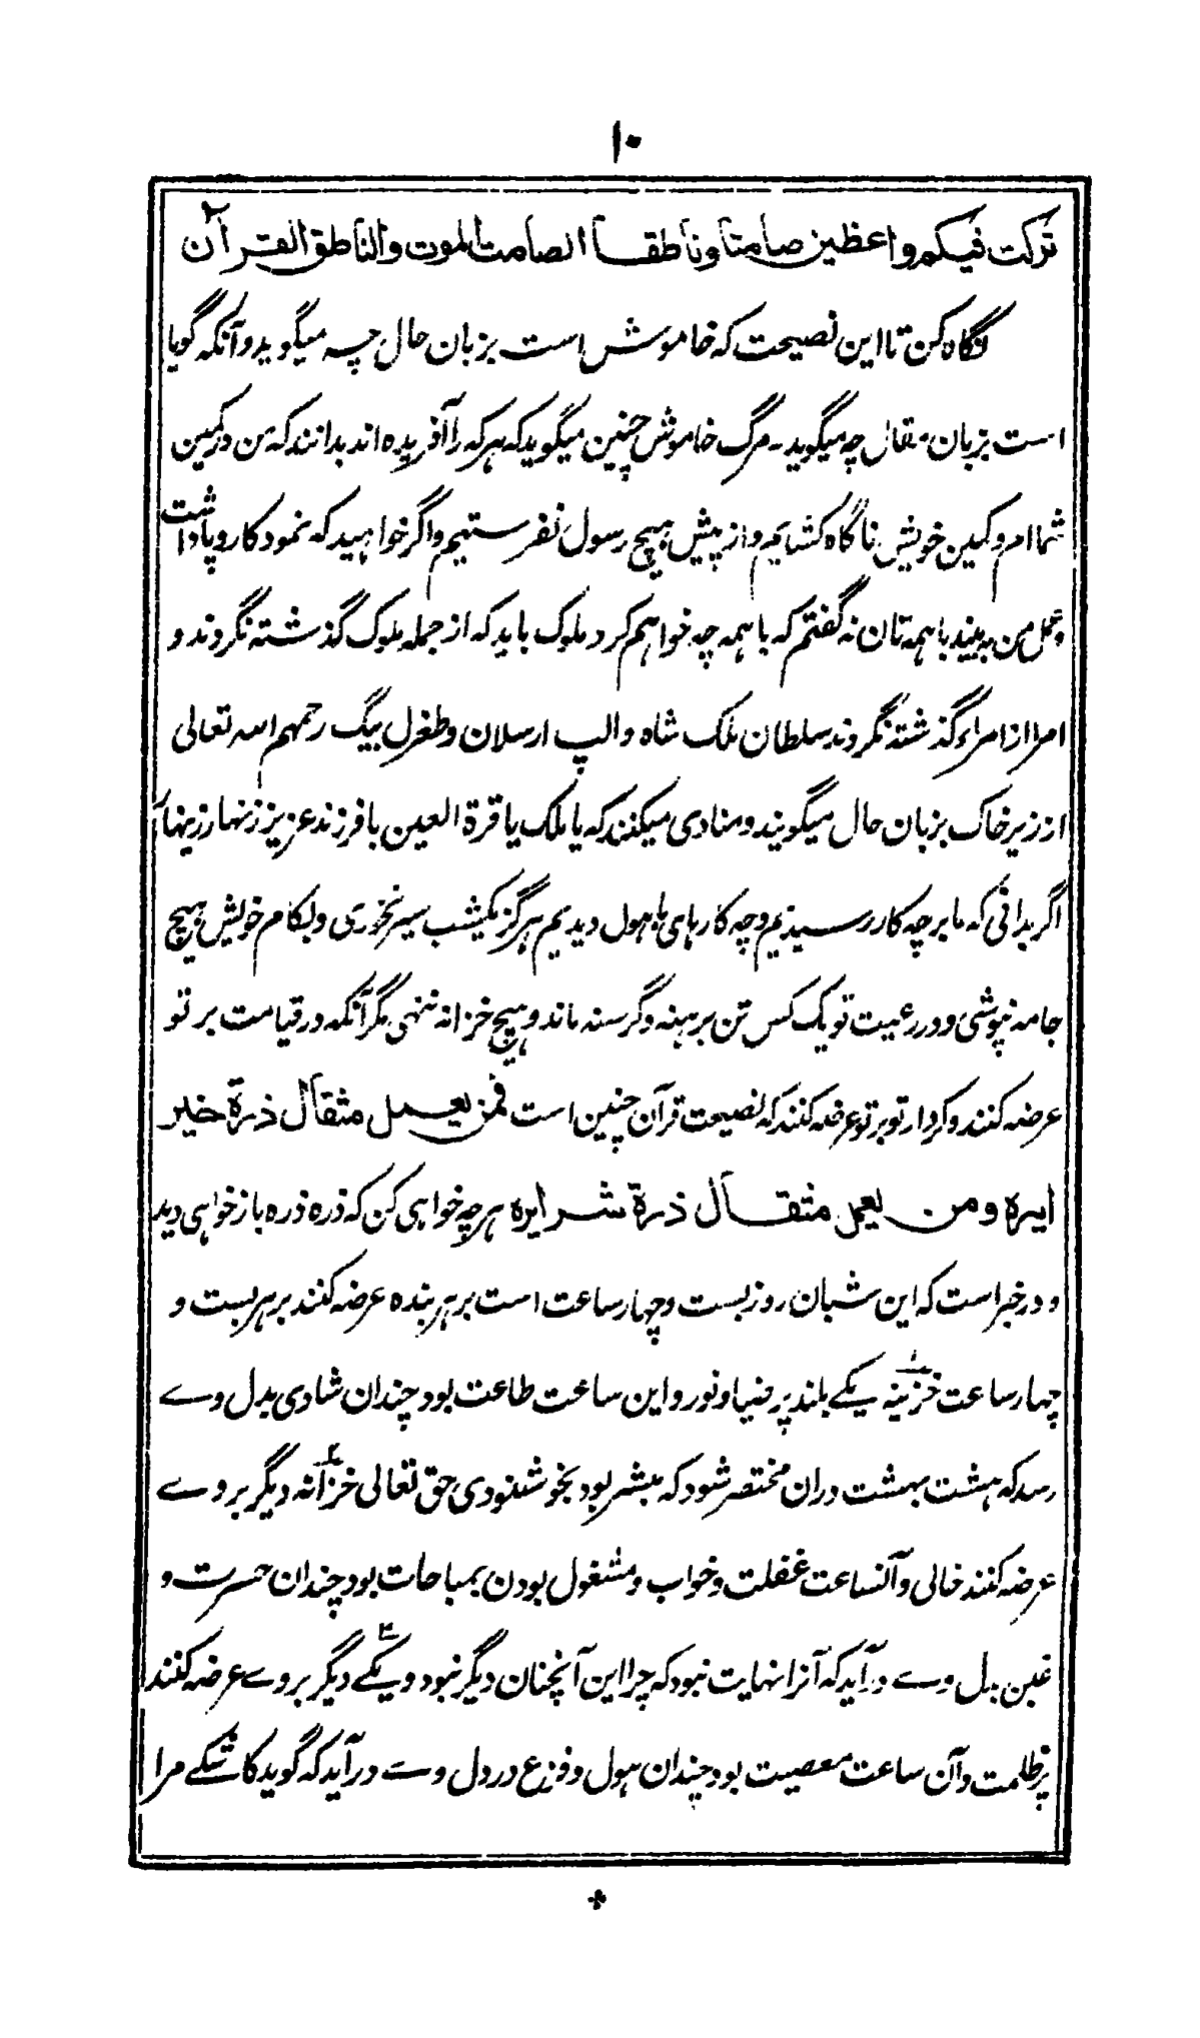 ۱۰
تركت فيكم واعظين صامتا وناطقا الصامت الموت والناطق القرآن
نگاه کن تا این نصیحت که خاموش است بزبان حال چه میگوید وآنکه گویا
است بزبان مقال چه میگوید ـ مرگ خاموش چنین میگوید که هرکه را آفریده اند بدانند که من در کمین
شما ام و کمین خویش ناگاه کشایم و از پیش هیچ رسول نفرستیم و اگر خواهید که نمود کار و پاداشت
و عمل من به بینید با همه تان نه گفتم که با همه چه خواهم کرد ملوک باید که از جمله ملوک گذشته نگرند و
امرا از امراء گذشته نگرند سلطان ملک شاه و الپ ارسلان و طغرل بیگ رحمهم الله تعالی
از زیر خاک بزبان حال میگویند و منادی میکنند که یا ملک یا قرة العین با فرزند عزیز زنهار زینهار
اگر بدانی که ما بر چه کار رسیدیم وچه کارهای باهول دیدیم هرگز یکشب سیر نخوری و بکام خویش هیچ
جامه نپوشی و در رعیت تو یک کس تن برهنه و گرسنه ماند و هیچ خزانه ننهی مگر آنکه در قیامت بر تو
عرضه کنند و کردار تو بر تو عرضه کنند که نصیحت قرآن چنین است فمن يعمل مثقال ذرة خير
ایره و من يعمل مثقال ذرة شر ایره هر چه خواهی کن که ذره ذره باز خواهی دید
و در خبر است که این شبان روز بست وچهار ساعت است بر هر بنده عرضه کنند بر هر بست و
چهار ساعت خزینه یکے بلند پر ضیا و نور و این ساعت طاعت بود چندان شادی بدل وے
رسد که هشت بهشت دران مختصر شود که مبشر بود بخوشنودی حق تعالی خزانه دیگر بر وے
عرضه کنند خالی و آنساعت غفلت و خواب و مشغول بودن بمباحات بود چندان حسرت و
غبن بدل وے در آید که آنرا نهایت نبود که چرا این آنچنان دیگر نبود و یکے دیگر بر وے عرضه کنند
پر ظلمت و آن ساعت معصیت بود چندان هول و فزع در دل وے در آید که گوید کاشکے مرا